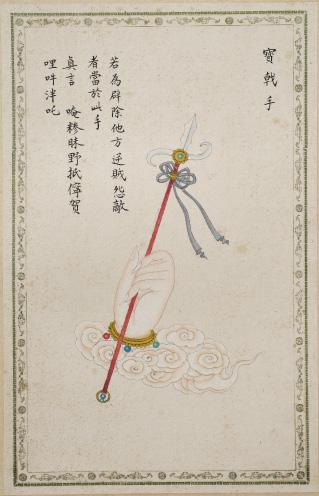 寶戟手
若為辟除他方逆賊怨敵
者當於此手
真言 唵穇昧野祇儜賀
哩吽泮吒